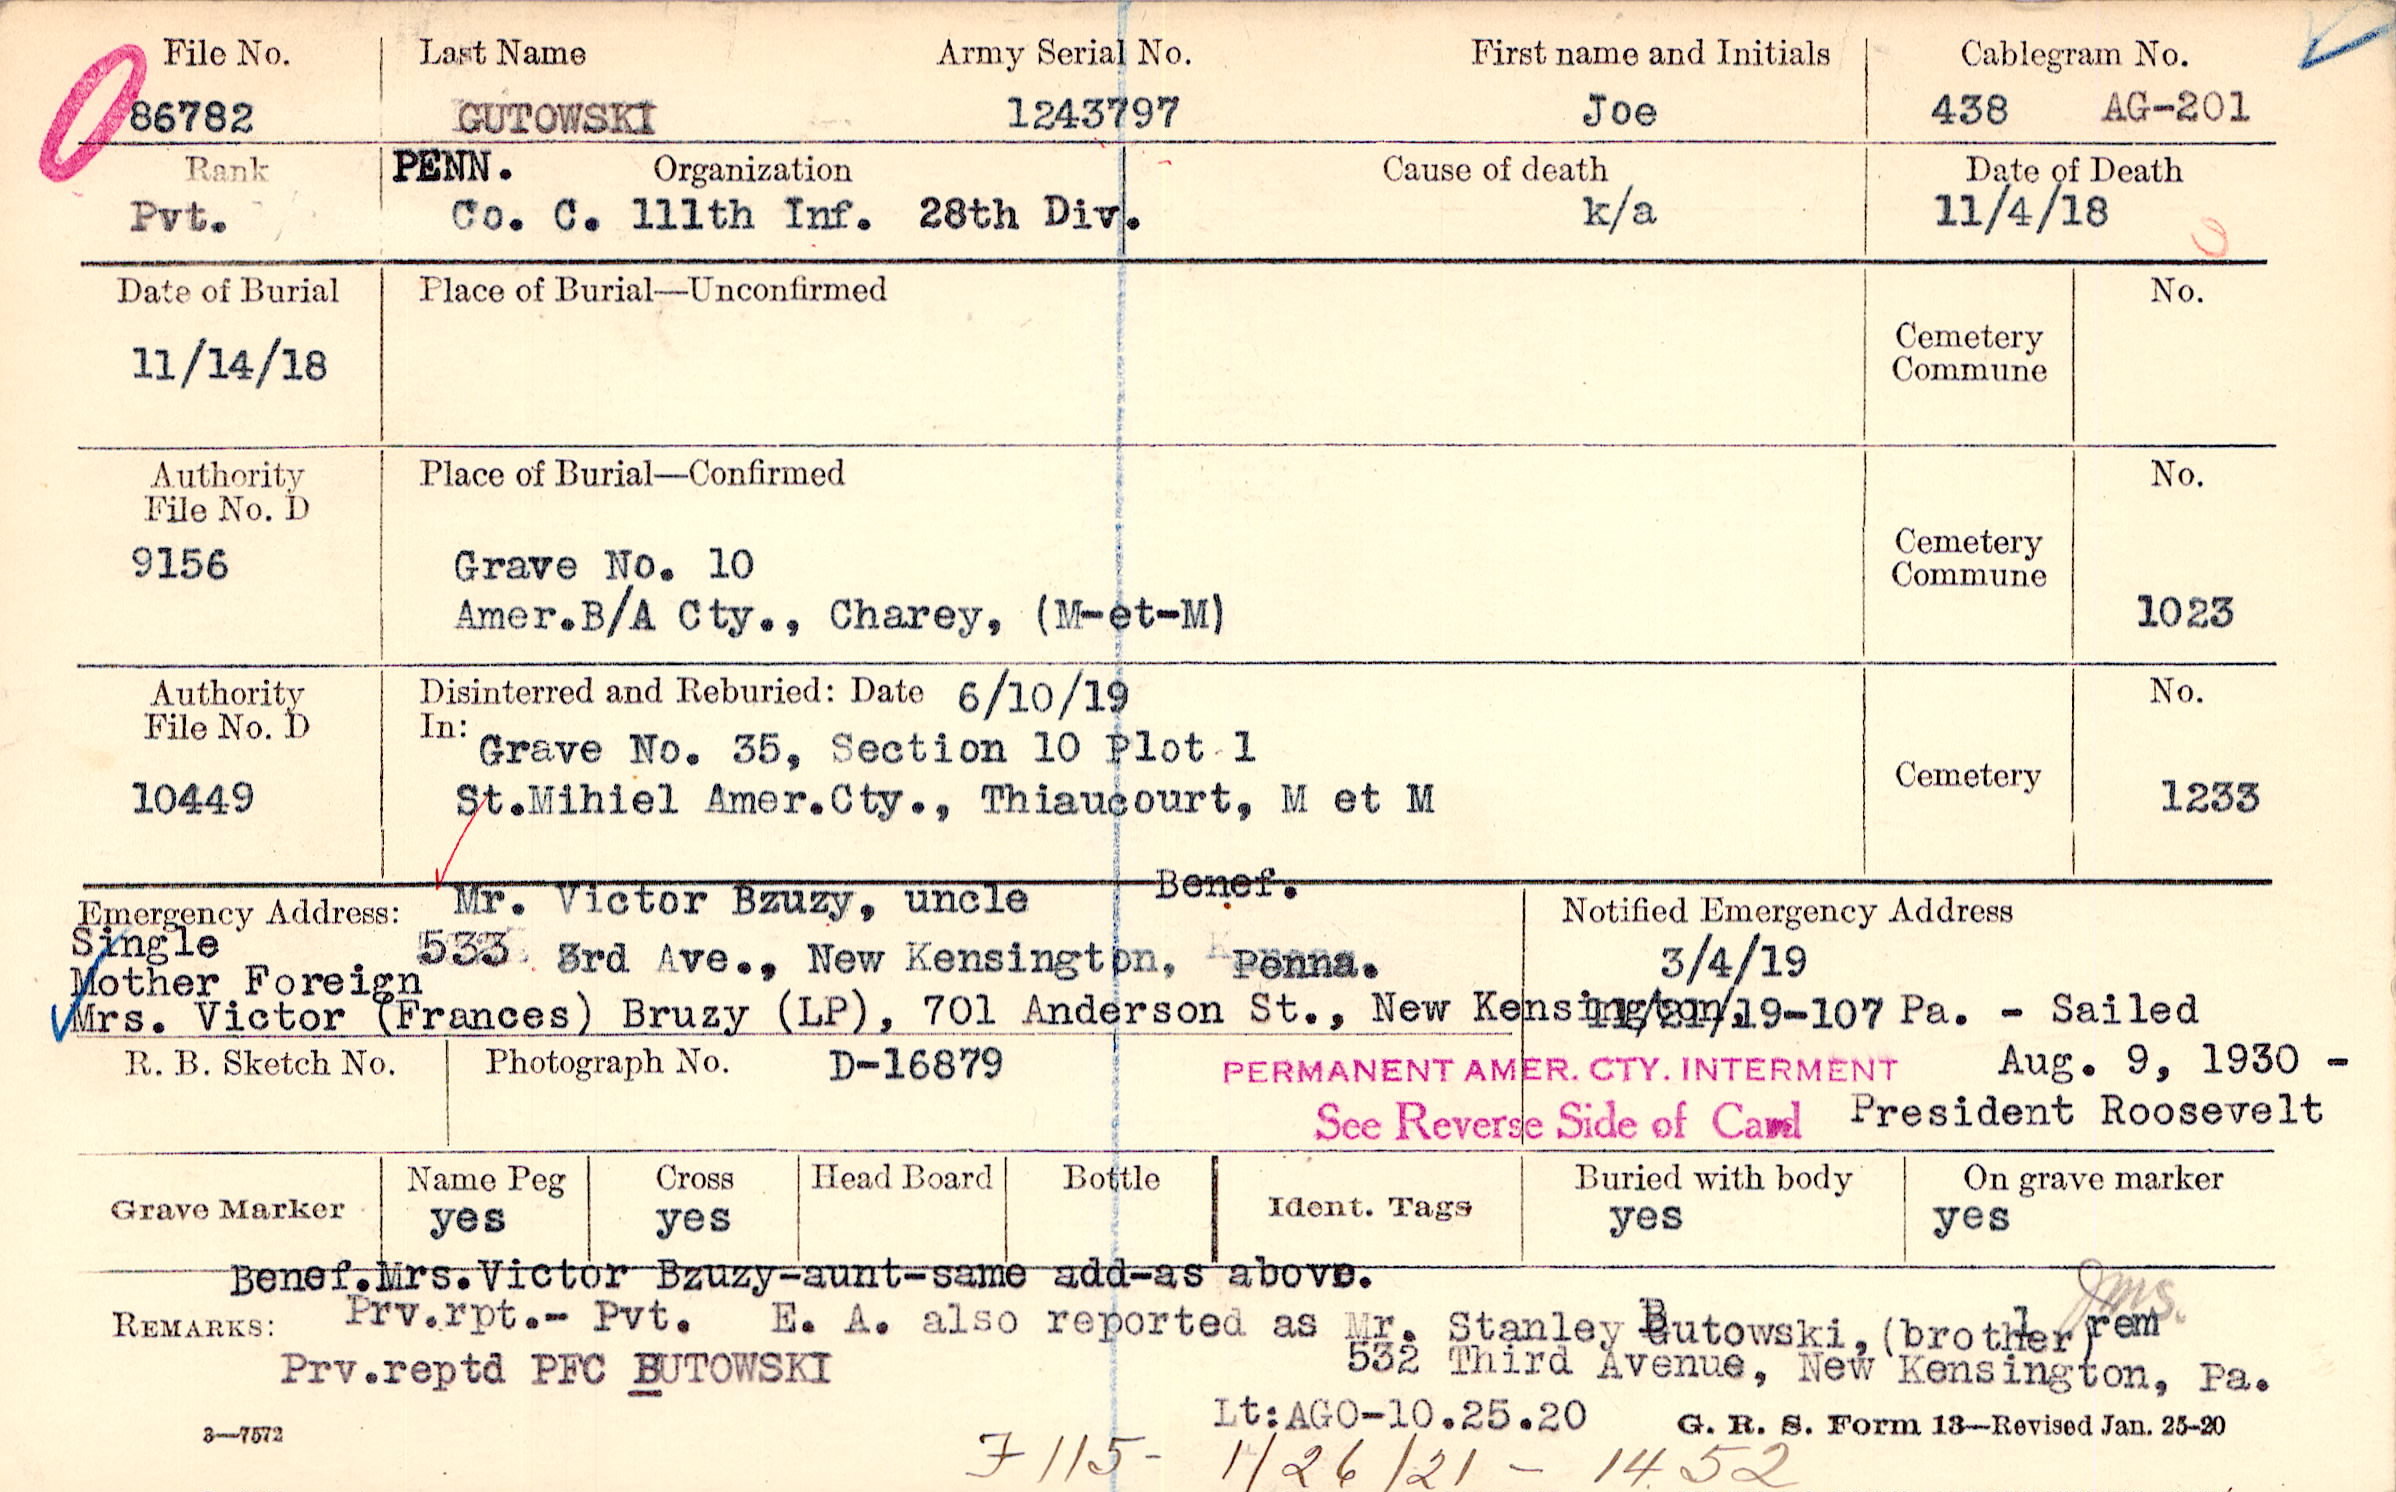 File No. Last Name Army Serial No. First name and Initials Cablegram No.
86782 GUTOWSKI 1243797 Joe 438 AG-201
Rank PENN. Organization Cause of death Date of Death
Pvt. Co. C. 111th Inf. 28th Div. k/a 11/4/18
Date of Burial Place of Burial—Unconfirmed No.
11/14/18 Cemetery
Commune
Authority Place of Burial—Confirmed No.
File No. D
9156 Grave No. 10 Cemetery
Commune
Amer.B/A Cty., Charey, (M-et-M) 1023
Authority Disinterred and Reburied: Date 6/10/19 No.
File No. D In:
Grave No. 35, Section 10 Plot 1
10449 St.Mihiel Amer.Cty., Thiaucourt, M et M Cemetery 1233
Benef.
Emergency Address: Mr. Victor Bzuzy, uncle Notified Emergency Address
Single 533 3rd Ave., New Kensington, Penna. 3/4/19
Mother Foreign
Mrs. Victor (Frances) Bruzy (LP), 701 Anderson St., New Kensington, 11/21/19-107 Pa. - Sailed
R. B. Sketch No. Photograph No. D-16879 PERMANENT AMER. CTY. INTERMENT Aug. 9, 1930 -
See Reverse Side of Card President Roosevelt
Grave Marker Name Peg Cross Head Board Bottle Ident. Tags Buried with body On grave marker
yes yes yes yes
Benef.Mrs.Victor Bzuzy-aunt-same add-as above.
REMARKS: Prv.rpt.- Pvt. E. A. also reported as Mr. Stanley Butowski, (brother) rem
Prv.reptd PFC BUTOWSKI 532 Third Avenue, New Kensington, Pa.
Lt:AGO-10.25.20 G. R. S. Form 13—Revised Jan. 25-20
3—7572
F115- 1/26/21 - 1452